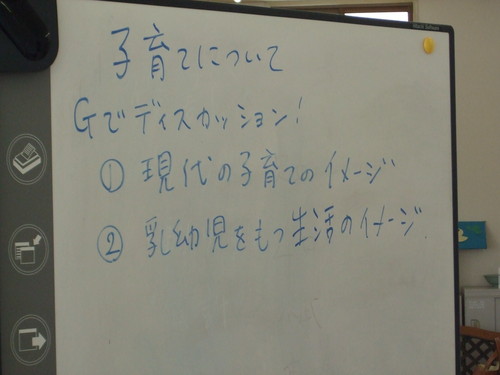 子育てについて
Gでディスカッション!
① 現代の子育てのイメージ
② 乳幼児をもつ生活のイメージ